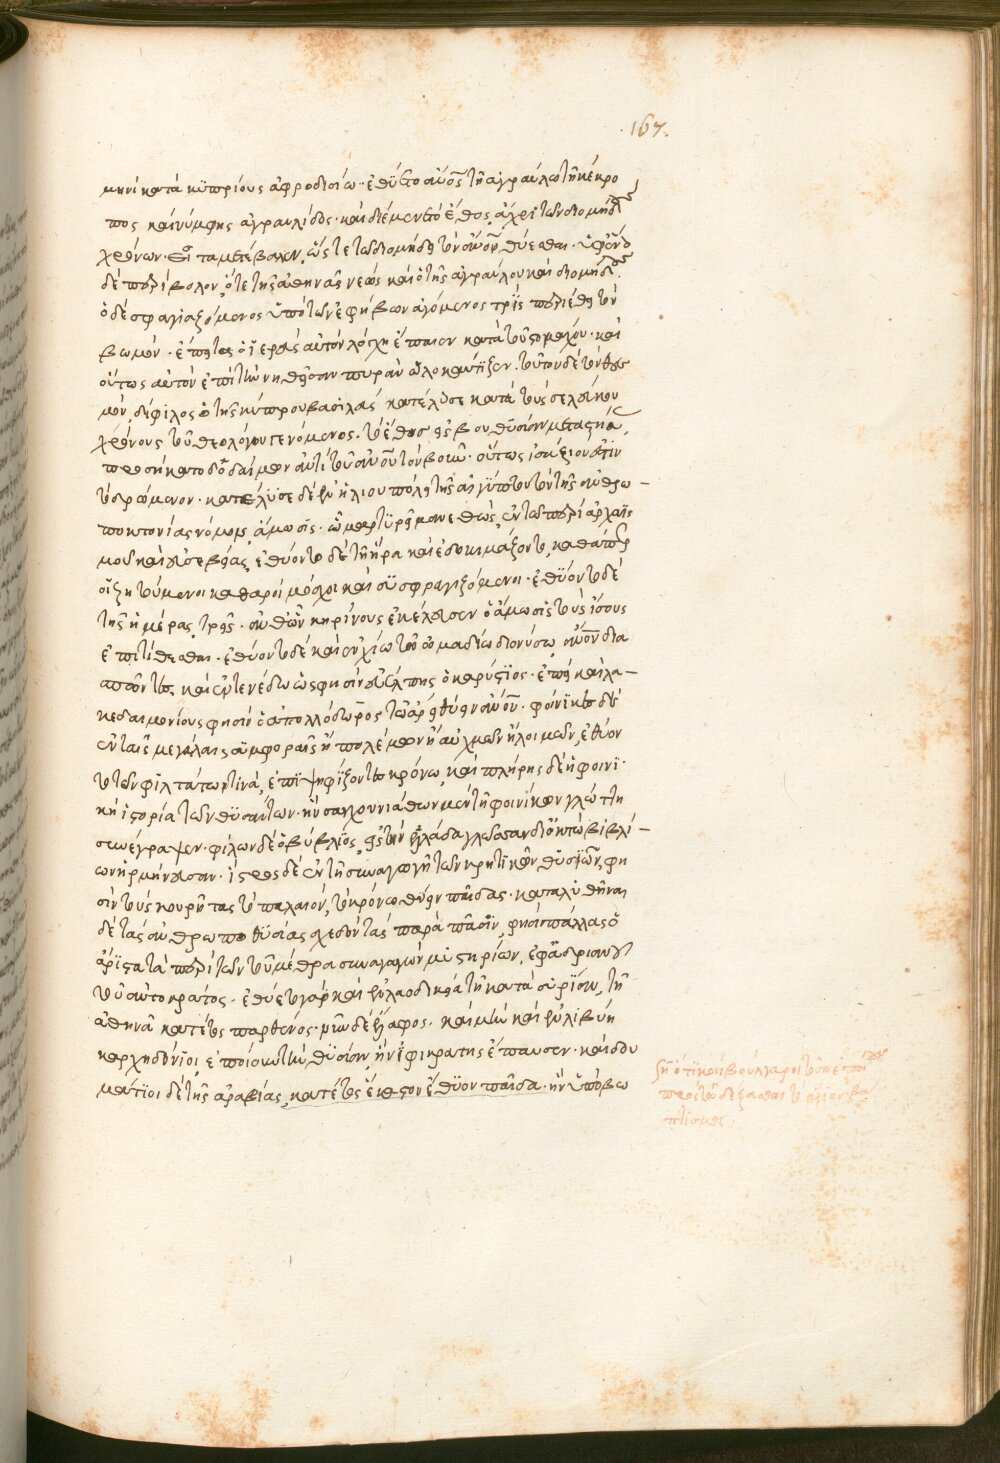 167.
μηνὶ κατὰ κυπρίους ἀφροδισίω· ἐθύετο ἄνος τῆ ἀγραύλω τῆ κέκρο
πος καὶ νύμφης ἀγραυλίδος· καὶ διέμενε τὸ ἔθος ἄχρι τῶν διομήδους
χρόνων· εἶτα μετέβαλεν, ὥστε τῶ διομήδει τὸν ἄνον θύεσθαι· ὑφ' ἕνα
δὲ περίβολον, ὅ τε τῆς ἀθηνᾶς νεὼς καὶ ὁ τῆς ἀγραύλου καὶ διομήδους.
ὁ δὲ σφαγιαζόμενος ὑπὸ τῶν ἐφήβων ἀγόμενος τρὶς περιέθει τὸν
βωμόν· ἔπειτα ὁ ἱερεὺς αὐτὸν λόγχη ἔπαιεν κατὰ τοῦ στομάχου· καὶ
οὕτως αὐτὸν ἐπὶ τὴν νησθεῖσαν πυρὰν ὡλοκαύτιζεν. τοῦτον δὲ τὸν θεσ
μὸν, δίφιλος ὁ τῆς κύπρου βασιλεὺς κατέλυσε κατὰ τοὺς σελεύκου
χρόνους τοῦ θεολόγου γενόμενος. τὸ ἔθος εἰς βουθυσίαν μεταστήσας,
προσήκατο δ' ὁ δαίμων ἀντὶ τοῦ ἀνου τὸν βοῦν· οὕτως ἰσάξιόν ἐστιν
τὸ δρώμενον· κατέλυσε δὲ ἐν ἡλίου πόλει τῆς αἰγύπτου τὸν τῆς ἀνθρω-
ποκτονίας νόμον, ἄμωσις· ὡς μαρτυρεῖ μανεθὼς, ἐν τῶ περὶ ἀρχαϊσ
μοῦ καὶ εὐσεβείας, ἐθύοντο δὲ τῆ ἥρα καὶ ἐδοκιμάζοντο, καθάπερ
οἱ ζητούμενοι καθαροὶ μόσχοι καὶ συσφραγιζόμενοι· ἐθύοντο δὲ
τῆς ἡμέρας τρεῖς· ἀνθ' ὧν κηρίνους ἐκέλευσεν ὁ ἄμωσις τοὺς ἴσους
ἐπιτίθεσθαι· ἐθύοντο δὲ καὶ ἐν χίω τῶ ὠμαδίω διονύσω, ἄνον δια
σπῶντες καὶ ἐν τενέδω ὥς φησιν εὔελπις ὁ καρύστιος· ἐπεὶ καὶ λα-
κεδαιμονίους φησὶν ὁ ἀπολλόδωρος τῶ ἄρει θύειν ἄνον· φοίνικες δὲ
ἐν ταῖς μεγάλαις συμφοραῖς ἢ πολέμων ἢ αὐχμῶν ἢ λοιμῶν, ἔθυον
τῶν φιλτάτων τινὰ, ἐπιψηφίζοντες κρόνω, καὶ πλήρης δὲ ἡ φοινι
κὴ ἱστορία τῶν θυσάντων· ἣν σαγχουνιάθων μὲν τῆ φοινίκων γλώττη
συνέγραψεν· φίλων δὲ ὁ βύβλιος, εἰς τὴν ἑλλάδα γλῶσσαν δι' ὀκτὼ βιβλί-
ων ἡρμήνευσεν· ἴστρος δὲ ἐν τῆ συναγωγῆ τῶν κρητικῶν θυσιῶν, φη
σὶν τοὺς κουρῆτας τὸ παλαιὸν, τῶ κρόνω θύειν παῖδας· καταλυθῆναι
δὲ τὰς ἀνθρωποθυσίας σχεδὸν τὰς παρὰ πᾶσιν, φησὶ πάλλας ὁ
ἄριστα τὰ περὶ τῶν τοῦ μίθρα συναγαγὼν μυστηρίων, ἐφ' ἀδριανοῦ
τοῦ αὐτοκράτος. ἐθύετο γὰρ καὶ ἐν λαοδικεία τῆ κατὰ συρίαν, τῆ
ἀθηνᾶ κατ' ἔτος παρθένος· νῦν δὲ ἔλαφος· καὶ μὴν καὶ ἐν λιβύη
καρχηδόνιοι, ἐποίουν τὴν θυσίαν, ἣν ἰφικράτης ἔπαυσεν· καὶ δου
μάτιοι δὲ τῆς ἀραβίας, κατ' ἔτος ἕκαστον ἔθυον παῖδα· ἣν ὑπὸ βω
ση ὅτι καὶ βούλγαροι τοῦτ' ἐποί
πρὸ τοῦ δέξασθαι τὸ ἅγιον βα
πτισμα